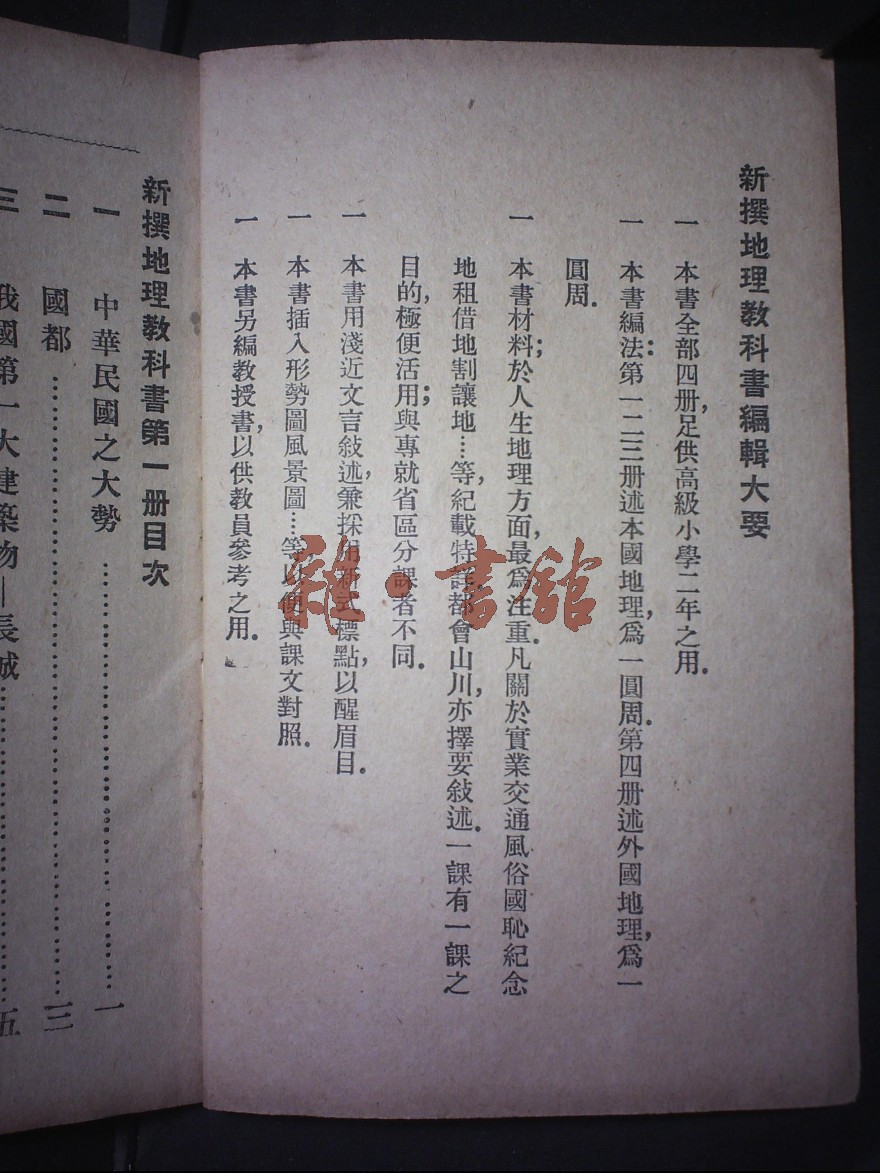 新撰地理教科書編輯大要
一 本書全部四册,足供高級小學二年之用.
一 本書編法:第一二三册述本國地理,爲一圓周.第四册述外國地理,爲一
圓周.
一 本書材料;於人生地理方面,最爲注重.凡關於實業交通風俗國恥紀念
地租借地割讓地……等,紀載特詳,都會山川,亦擇要敍述.一課有一課之
目的,極便活用;與專就省區分課者不同.
一 本書用淺近文言敍述,兼採用新式標點,以醒眉目.
一 本書插入形勢圖風景圖……等,以便與課文對照.
一 本書另編教授書,以供教員參考之用.
新撰地理教科書第一册目次
一 中華民國之大勢……一
二 國都……三
三 我國第一大建築物—長城……五
雜·書館